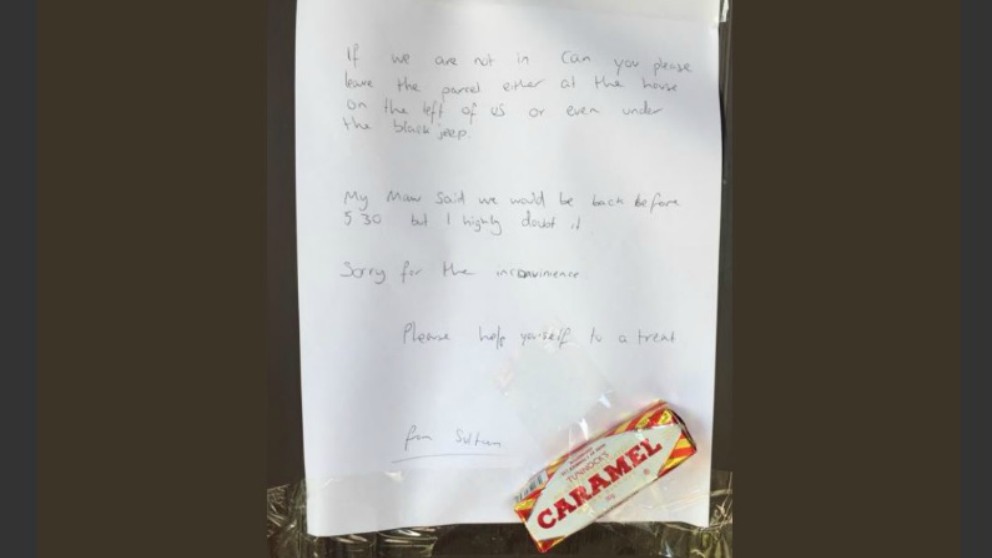 If we are not in can you please
leave the parcel either at the house
on the left of us or even under
the black jeep.
My Maw said we would be back before
5 30 but I highly doubt it
Sorry for the inconvinience
Please help yourself to a treat
from
TUNNOCK'S
CARAMEL